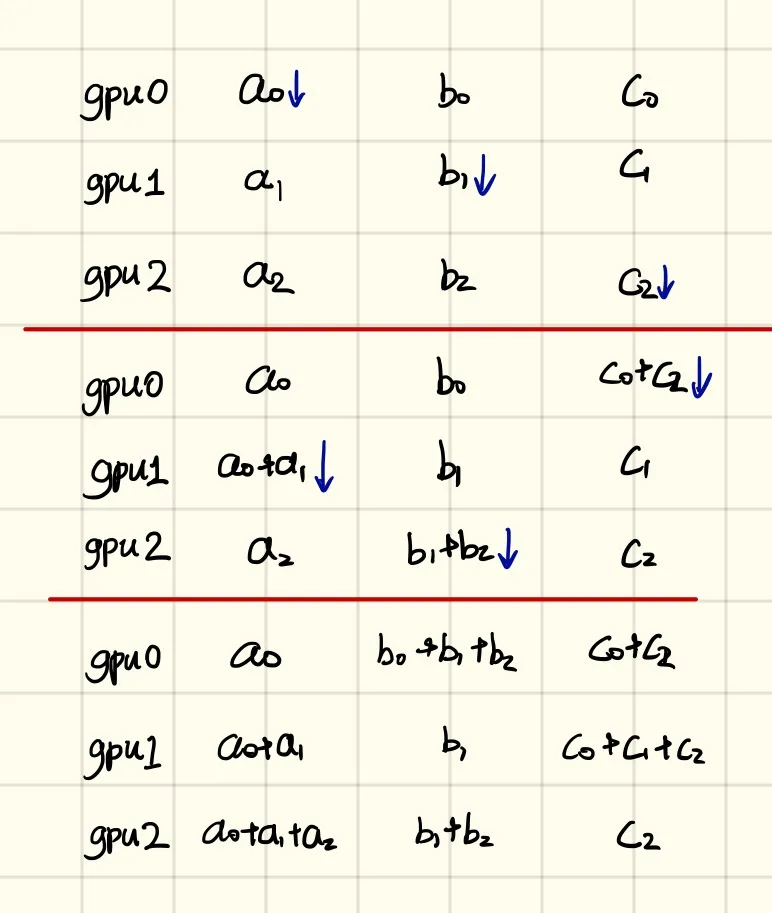 gpu0 a₀↓ b₀ c₀
gpu1 a₁ b₁↓ c₁
gpu2 a₂ b₂ c₂↓
gpu0 a₀ b₀ c₀+c₂↓
gpu1 a₀+a₁↓ b₁ c₁
gpu2 a₂ b₁+b₂↓ c₂
gpu0 a₀ b₀+b₁+b₂ c₀+c₂
gpu1 a₀+a₁ b₁ c₀+c₁+c₂
gpu2 a₀+a₁+a₂ b₁+b₂ c₂